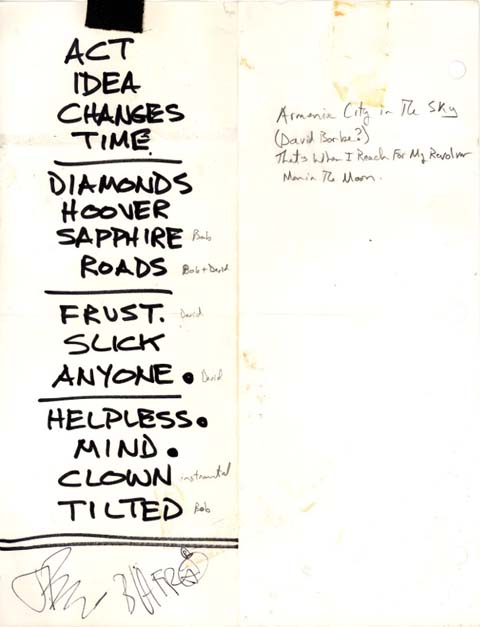 ACT
IDEA
CHANGES
TIME
DIAMONDS
HOOVER
SAPPHIRE Bob
ROADS Bob + David
FRUST. David
SLICK
ANYONE. David
HELPLESS.
MIND.
CLOWN instrumental
TILTED Bob
Armenia City in The Sky
(David Barbe?)
That's When I Reach For My Revolver
Man in The Moon.